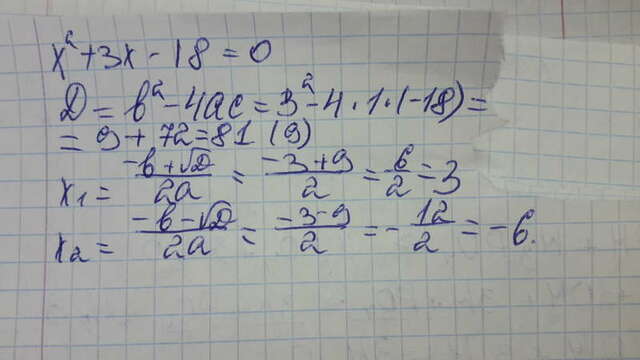 x²+3x-18=0
D=b²-4ac=3²-4·1·(-18)=
=9+72=81 (9)
x₁= (-b+√D)/2a = (-3+9)/2 = 6/2=3
x₂= (-b-√D)/2a = (-3-9)/2 =- 12/2 =-6.